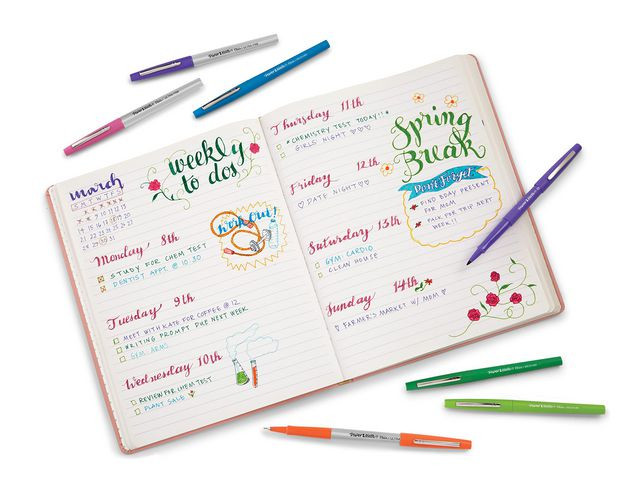 weekly
to dos
march
S M T W T F S
Monday 8th
STUDY FOR CHEM TEST
DENTIST APPT. @ 10:30
Work Out!
Tuesday 9th
MEET WITH KATE FOR COFFEE @ 12
WRITING PROMPT DUE NEXT WEEK
GYM: ARMS
Wednesday 10th
REVIEW FOR CHEM TEST
PLANT SALE
Thursday 11th
*CHEMISTRY TEST TODAY!!*
GIRLS NIGHT
Friday 12th
DATE NIGHT
Saturday 13th
GYM: CARDIO
CLEAN HOUSE
Sunday 14th
FARMER'S MARKET W/ MOM
Spring
Break
Don't Forget
FIND BDAY PRESENT
FOR MOM
PACK FOR TRIP NEXT
WEEK!!
Paper Mate
Paper Mate
Paper Mate
Paper Mate
Paper Mate
Paper Mate
Paper Mate